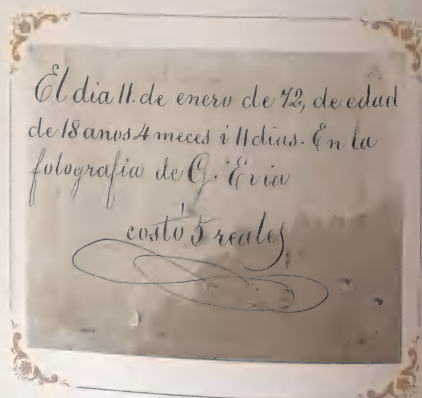 El dia 11. de enero de 72, de edad
de 18 anos 4 meces i 11 dias. En la
fotografia de G. Evia
costó 5 reales